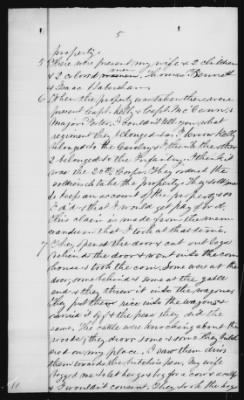 5
property.
5 There were present my wife & 2 children
& 2 colored men, Thomas Bennett
& Isaac Habersham.
6 When the property was taken there were
present Capt. Kelly & Capt. McCann,
Major I couldn't tell you what
regiment they belonged to. I know Kelly
belonged to the Cavalry & I think the other
2 belonged to the Infantry. I think it
was the 20th Corps. They ordered the
soldiers to take the property. They told me
to keep an account of the property so
I did & that I would get pay for it.
This claim is made from the mem-
orandum that I took at that time.
7 They opened the doors & cut out logs
behind the door & went into the corn
house & took the corn. Some were at the
door, some behind & some at the gate
and as they threw it into the wagons
They put the rice into the wagons &
carried it off & the peas they did the
same. The cattle were knocking about the
woods; they drove some & some they killed
out on my place. I saw them drive
them towards the butcher's pen. My wife
begged me to let her go beg for a cow & calf
& I wouldn't consent. They took the hogs